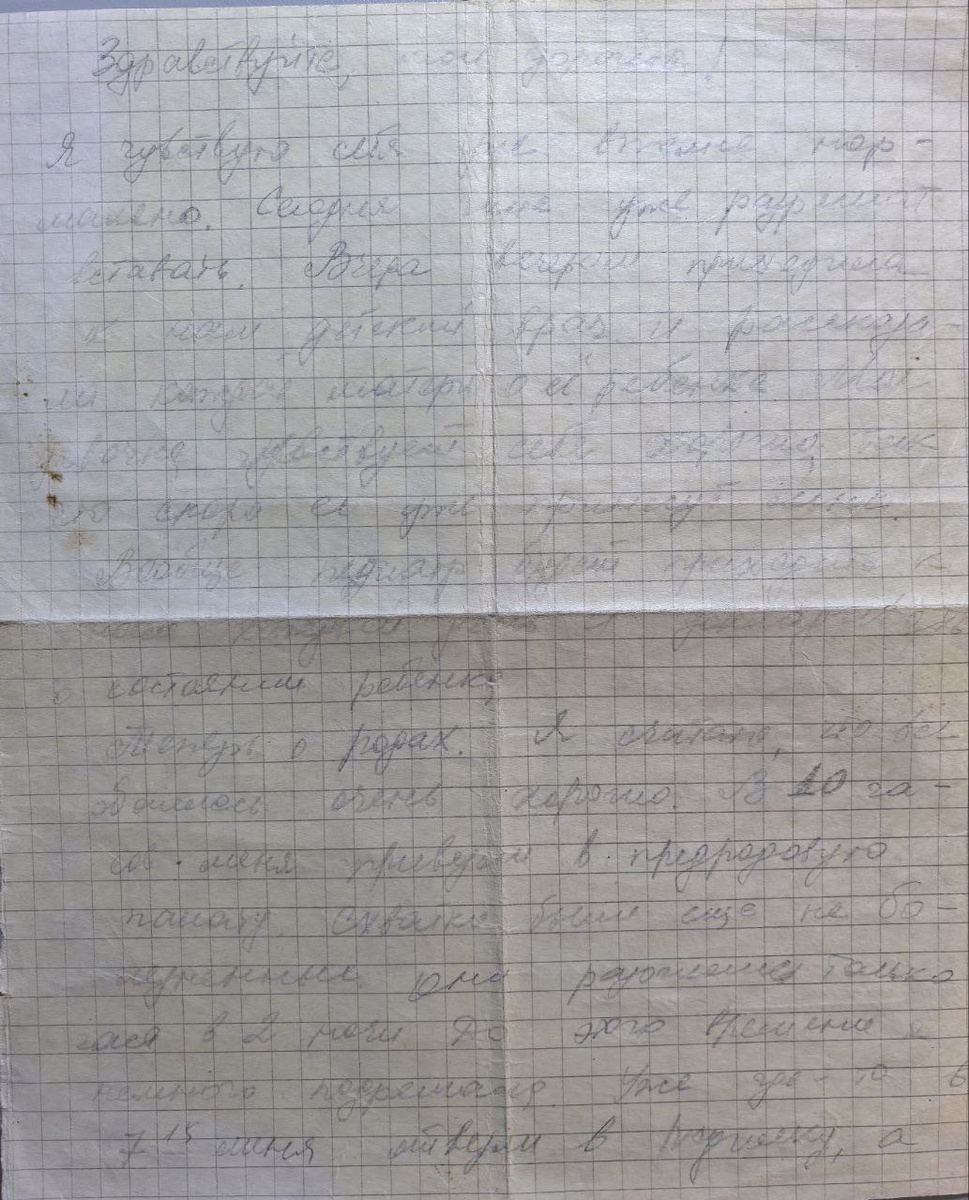 Здравствуйте, мои дорогие!
Я чувствую себя уже вполне нор-
мально. Сегодня мне уже разрешили
вставать. Вчера вечером приходила
к нам детский врач и рассказа-
ла каждой матери о её ребенке. Моя
дочка чувствует себя хорошо, так
что скоро её уже принесут мне.
Вообще педиатр будет приходить к
нам каждый день и
о состоянии ребенка.
Теперь о родах. Я считаю, что все
обошлось очень хорошо. В 10 ча-
сов меня привезли в предродовую
палату. Схватки были еще не бо-
лезненные. Они только
часа в 2 ночи. До этого времени я
немного подремала. Уже где-то в
7 15 меня отвезли в родилку, а